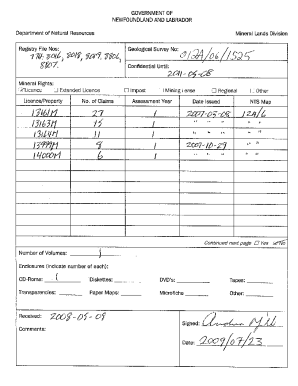 GOVERNMENT OF
NEWFOUNDLAND AND LABRADOR
Department of Natural Resources Mineral Lands Division
Registry File Nos: Geological Survey No: 012A/06/1525
8018, 8019, 8806,
8807. Confidential Until:
2011-05-08
Mineral Rights:
Licence Extended Licence Impost Mining Lease Regional Other
Licence/Property No. of Claims Assessment Year Date Issued NTS Map
13161M 27 1 2007-03-08 12A/6
13163M 15 1 " " " " "
13164M 11 1 " " " " "
13999M 8 1 2007-10-29 " "
14000M 6 1 " " " " "
Continued next page Yes No
Number of Volumes: 1
Enclosures (indicate number of each):
CD-Roms: 1 Diskettes: DVD's: Tapes:
Transparencies: Paper Maps: Microfiche Other:
Received: 2008-05-09 Signed:
Comments: Date: 2009/07/23